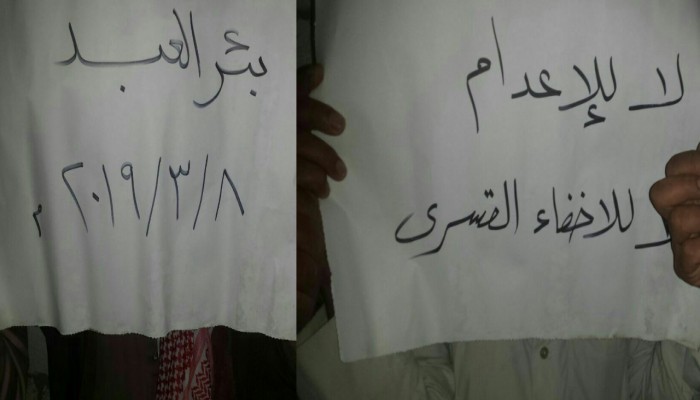 بئر العبد
٢٠١٩/٣/٨ م
لا للإعدام
للاخفاء القسرى